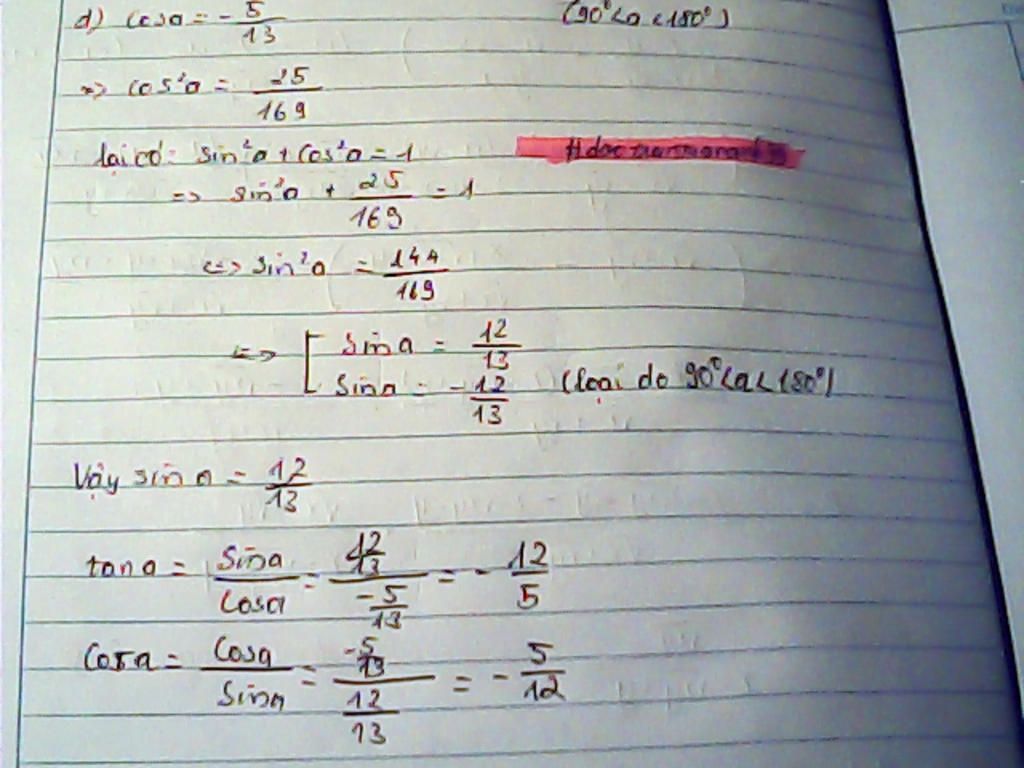 d) cosa = - 5/13 (90° < a < 180°)
=> cos²a = 25/169
lại có: sin²a + cos²a = 1
=> sin²a + 25/169 = 1
<=> sin²a = 144/169
<=> [ sina = 12/13
sina = - 12/13 (loại do 90° < a < 180°)
Vậy sina = 12/13
tana = sina/cosa = (12/13)/(-5/13) = - 12/5
cota = cosa/sina = (-5/13)/(12/13) = - 5/12